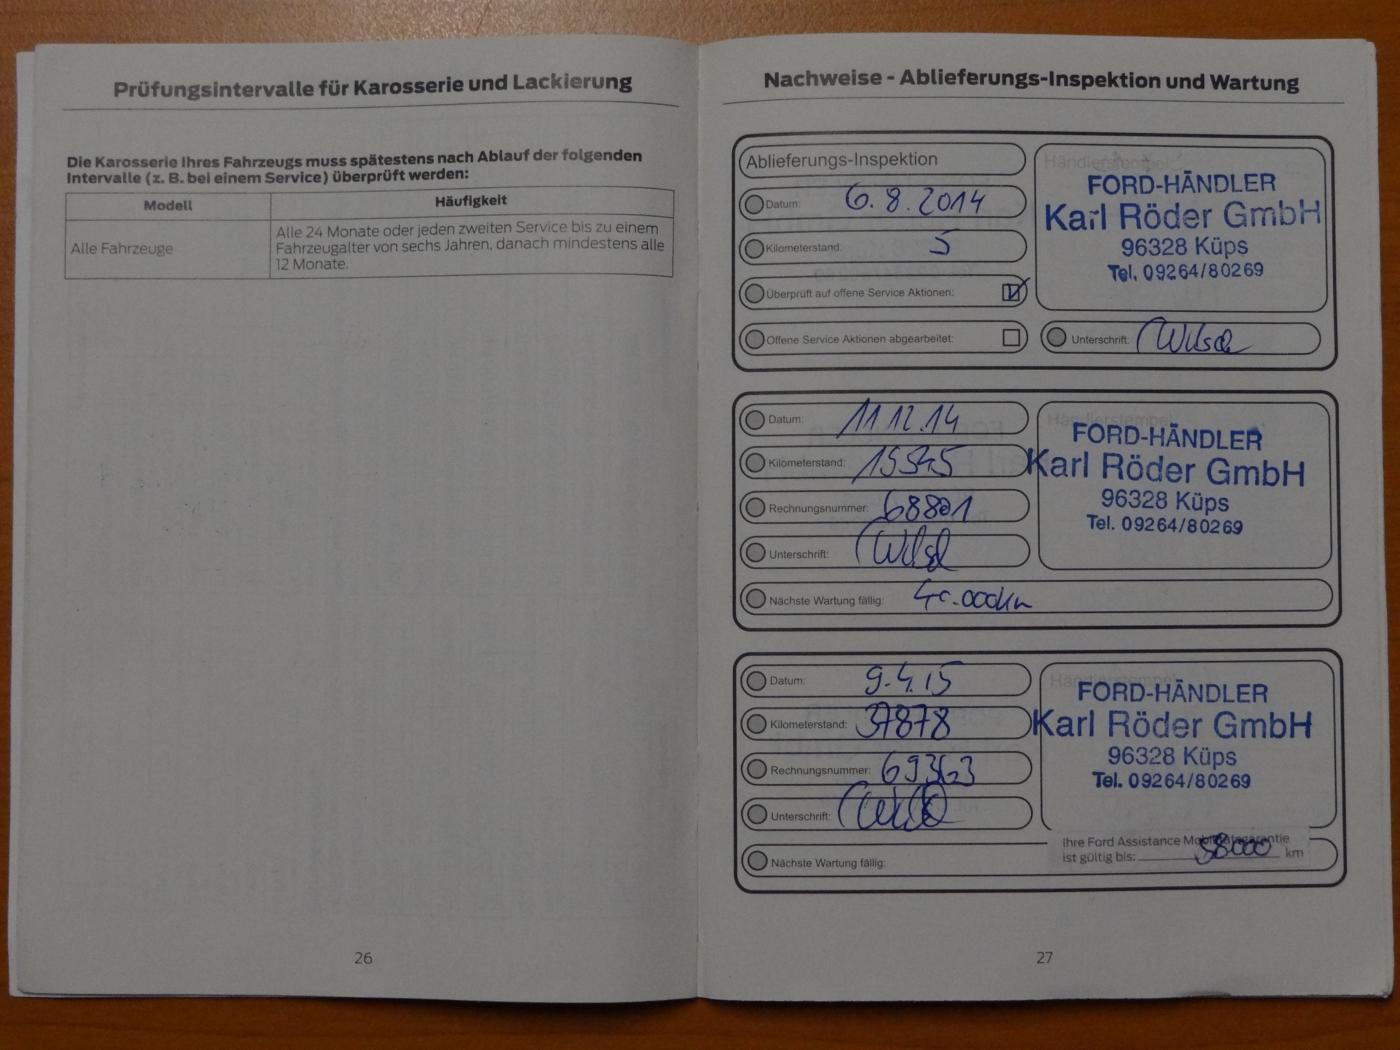 Prüfungsintervalle für Karosserie und Lackierung
Die Karosserie Ihres Fahrzeugs muss spätestens nach Ablauf der folgenden
Intervalle (z. B. bei einem Service) überprüft werden:
Modell Häufigkeit
Alle Fahrzeuge
Alle 24 Monate oder jeden zweiten Service bis zu einem
Fahrzeugalter von sechs Jahren, danach mindestens alle
12 Monate.
26
Nachweise - Ablieferungs-Inspektion und Wartung
Ablieferungs-Inspektion
Datum: 6.8.2014
Kilometerstand: 5
Überprüft auf offene Service Aktionen:
Offene Service Aktionen abgearbeitet:
Händlerstempel:
FORD-HÄNDLER
Karl Röder GmbH
96328 Küps
Tel. 09264/80269
Unterschrift:
Datum: 11.12.14
Kilometerstand: 15545
Rechnungsnummer: 68801
Unterschrift:
Händlerstempel:
FORD-HÄNDLER
Karl Röder GmbH
96328 Küps
Tel. 09264/80269
Nächste Wartung fällig: 40.000km
Datum: 9.4.15
Kilometerstand: 37878
Rechnungsnummer: 69363
Unterschrift:
Händlerstempel:
FORD-HÄNDLER
Karl Röder GmbH
96328 Küps
Tel. 09264/80269
Nächste Wartung fällig:
Ihre Ford Assistance Mobilitätsgarantie
ist gültig bis: 58000 km
27